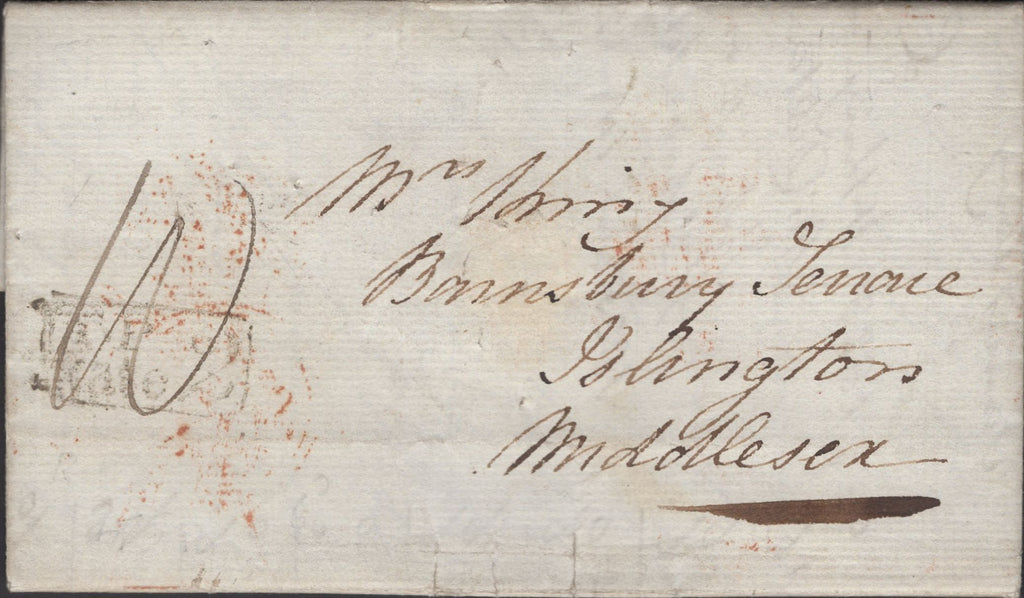 Mrs
Barnsbury Terrace
Islington
Middlesex
10